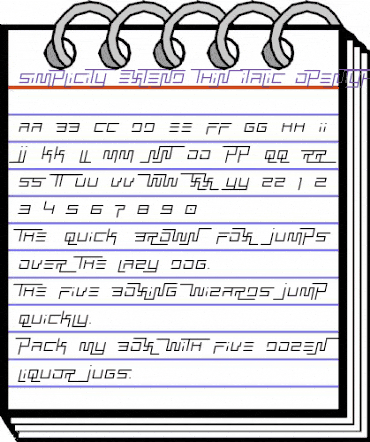 Simplicity Extend Thin Italic OpenTyp
AA BB CC DD EE FF GG HH ii
jj KK LL MM NN OO PP QQ RR
SS TT UU VV WW XX YY ZZ 1 2
3 4 5 6 7 8 9 0
THE QUICK BROWN FOX JUMPS
OVER THE LAZY DOG.
THE FIVE BOXING WIZARDS JUMP
QUICKLY.
PACK MY BOX WITH FIVE DOZEN
LIQUOR JUGS.